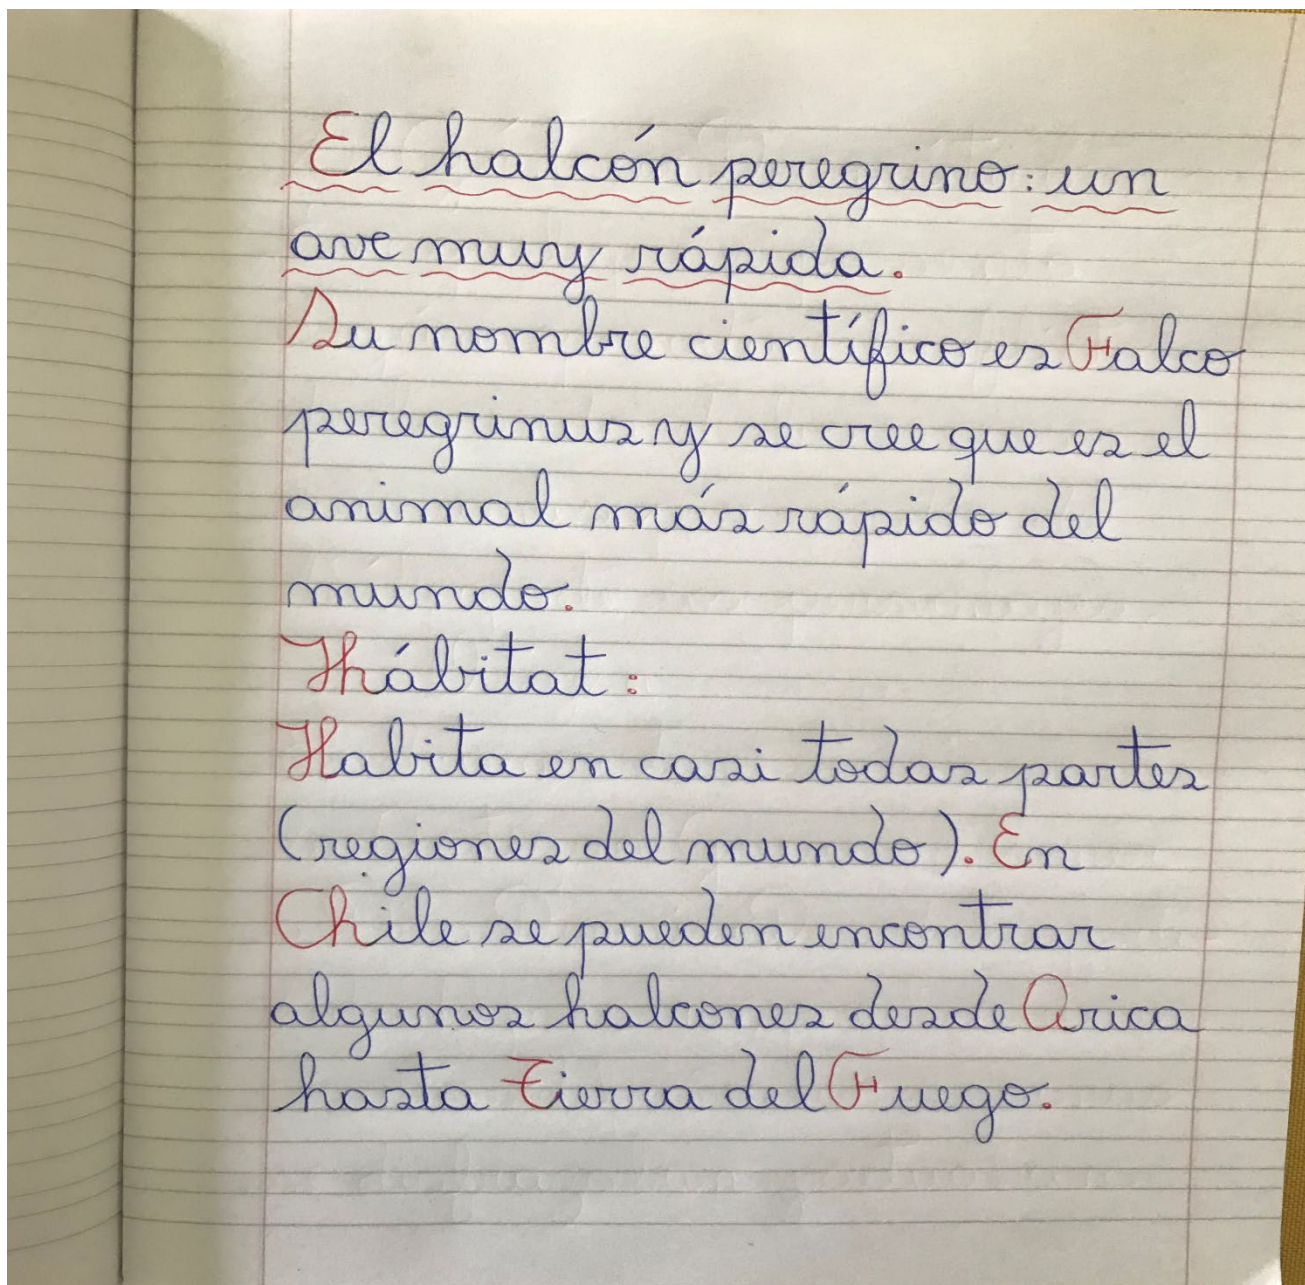 El halcón peregrino: un
ave muy rápida.
Su nombre científico es Falco
peregrinus y se cree que es el
animal más rápido del
mundo.
Hábitat:
Habita en casi todas partes
(regiones del mundo). En
Chile se pueden encontrar
algunos halcones desde Arica
hasta Tierra del Fuego.